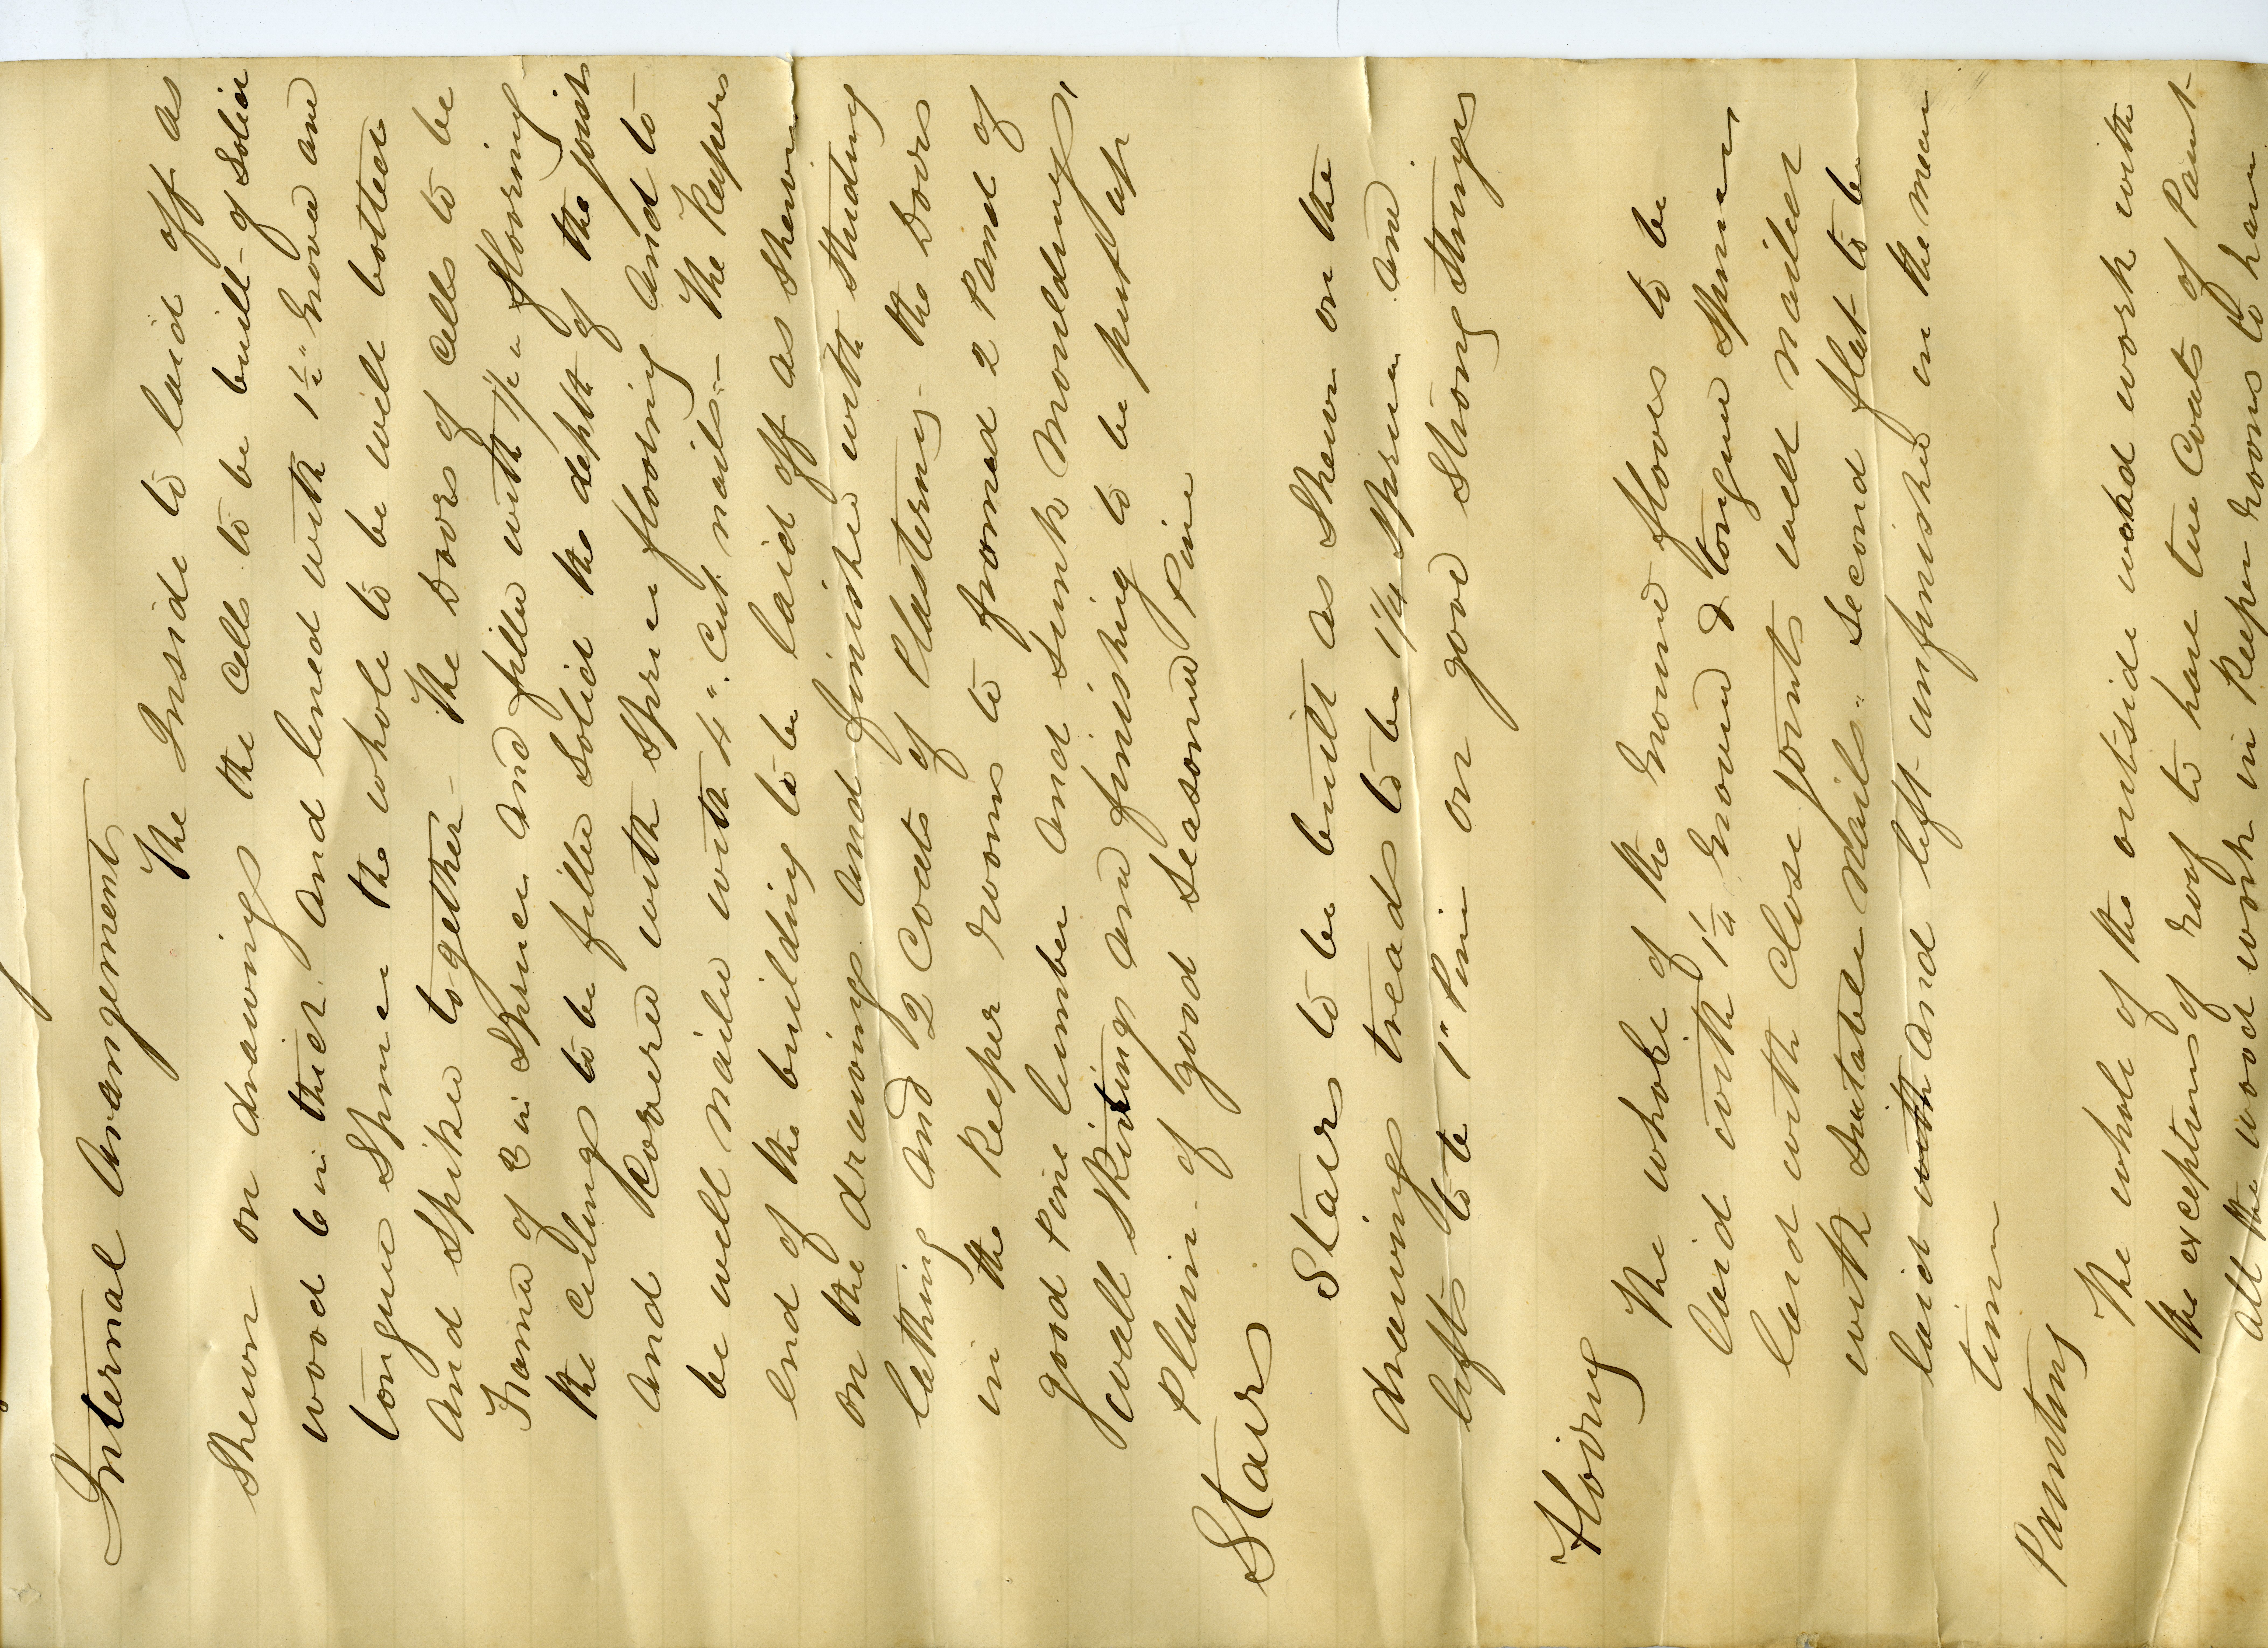 Internal Arangement
The Inside to laid off as
Shewn on drawings the Cells to be built of Solid
wood 6 in thick and lined with 1½" Groved and
tongue Spruce the whole to be well bolted
and Spiked together - The Doors of Cells to be
Framed of 3 in Spruce and filled with 1½ in flooring
the Cilings to be filled Solid the depth of the joists
and Kovered with Spruce flooring and to
be well nailed with 4" Cut nails - The Keepers
End of the building to be laid off as Shewn
on the drawings and finished with studing
lathing and 2 Coats of Plastering the Doors
in the Keeper rooms to framed 2 Panel of
good Pine lumber and Sunk mouldings,
wall Skirtings and finishing to be put up
Plain of good Seasoned Pine
Stairs
Stairs to be built as Shewn on the
drawings treads to be 1¼ Spruce and
lifts to be 1" Pine on good Strong Strings
Flooring
The whole of the Ground floors to be
laid with 1¼" Groved & tongue Spruce
laid with Close joints well nailed
with Suitable Nails Second flat to be
laid with and left unfinished in the mean
time
Painting
The whole of the outside wood work with
the exceptions of roof to have two Coats of Paint
All the wood work in Keeper rooms to have